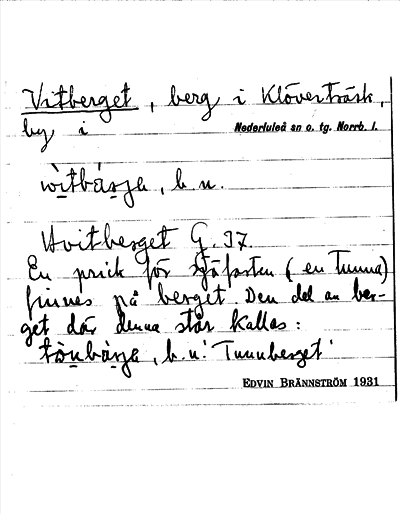 Vitberget, berg i Klöverträsk,
by i Nederluleå sn o. tg. Norrb. l.
wìtbárja, b. n.
Hvitberget G. 37.
En prick för sjöfarten (en Tunna)
finnes på berget. Den del av ber-
get där denna står kallas:
tònbárja, b. n. 'Tunnberget'
EDVIN BRÄNNSTRÖM 1931